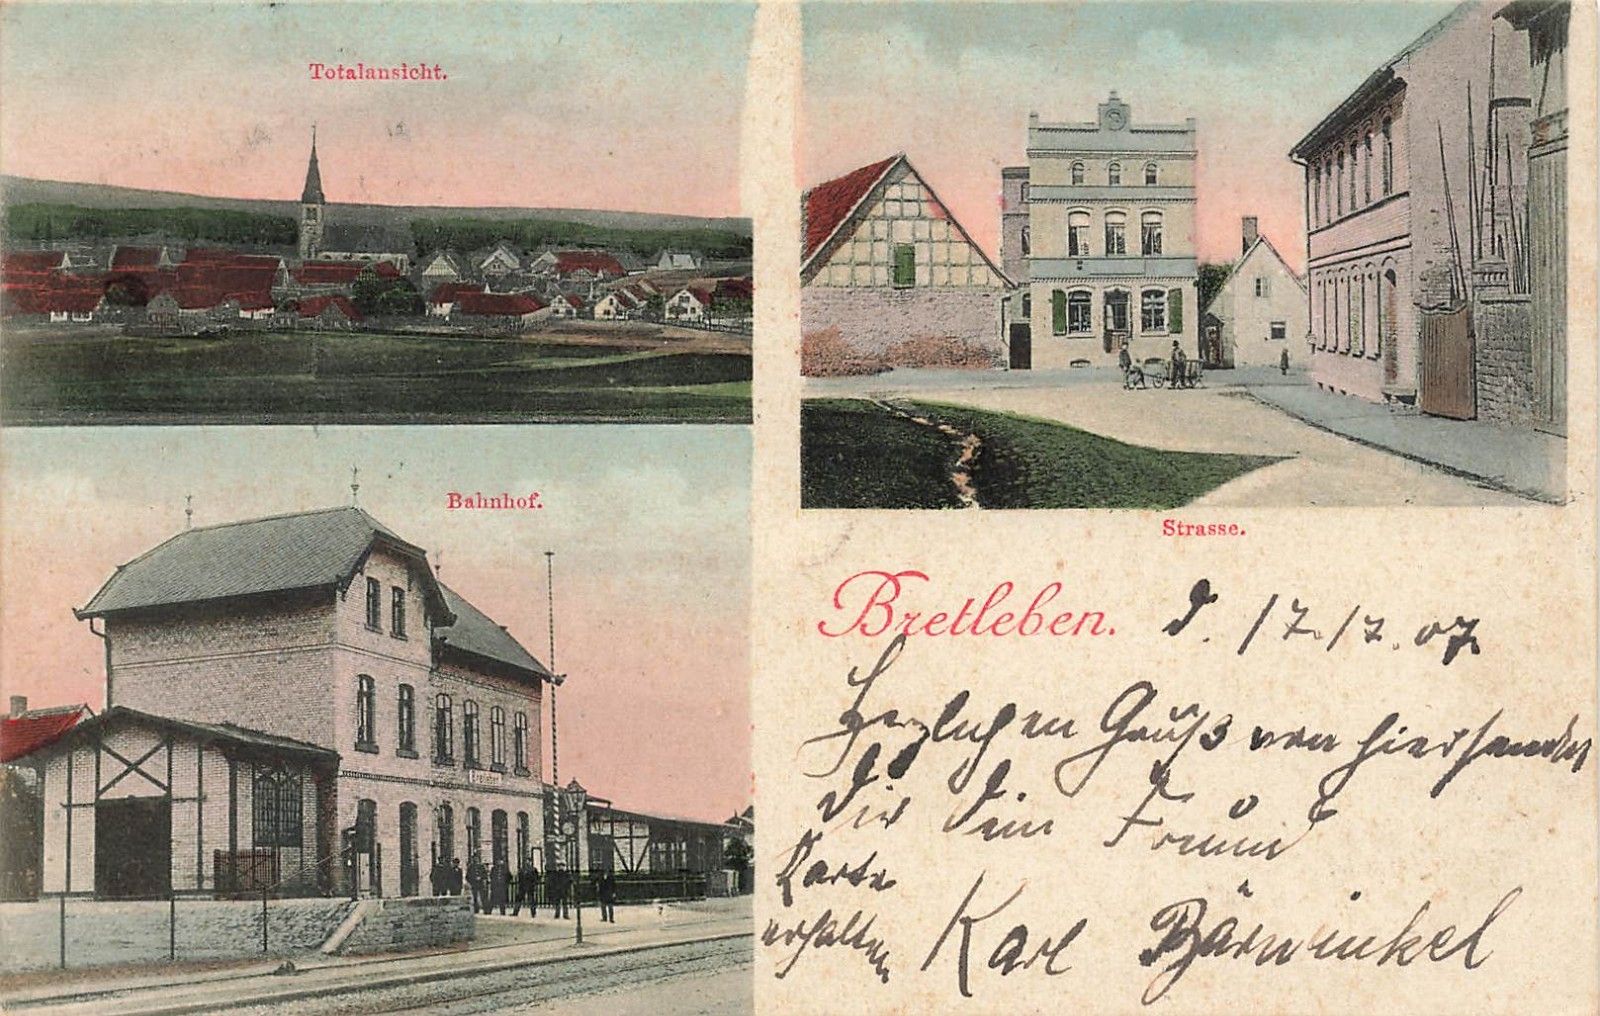 Totalansicht.
Strasse.
Bahnhof.
Bretleben
Bretleben. d. 17.7.07
Herzlichen Gruß von hier sendet
Dir Dein Freund
Karte
erhalten
Karl Bärwinkel